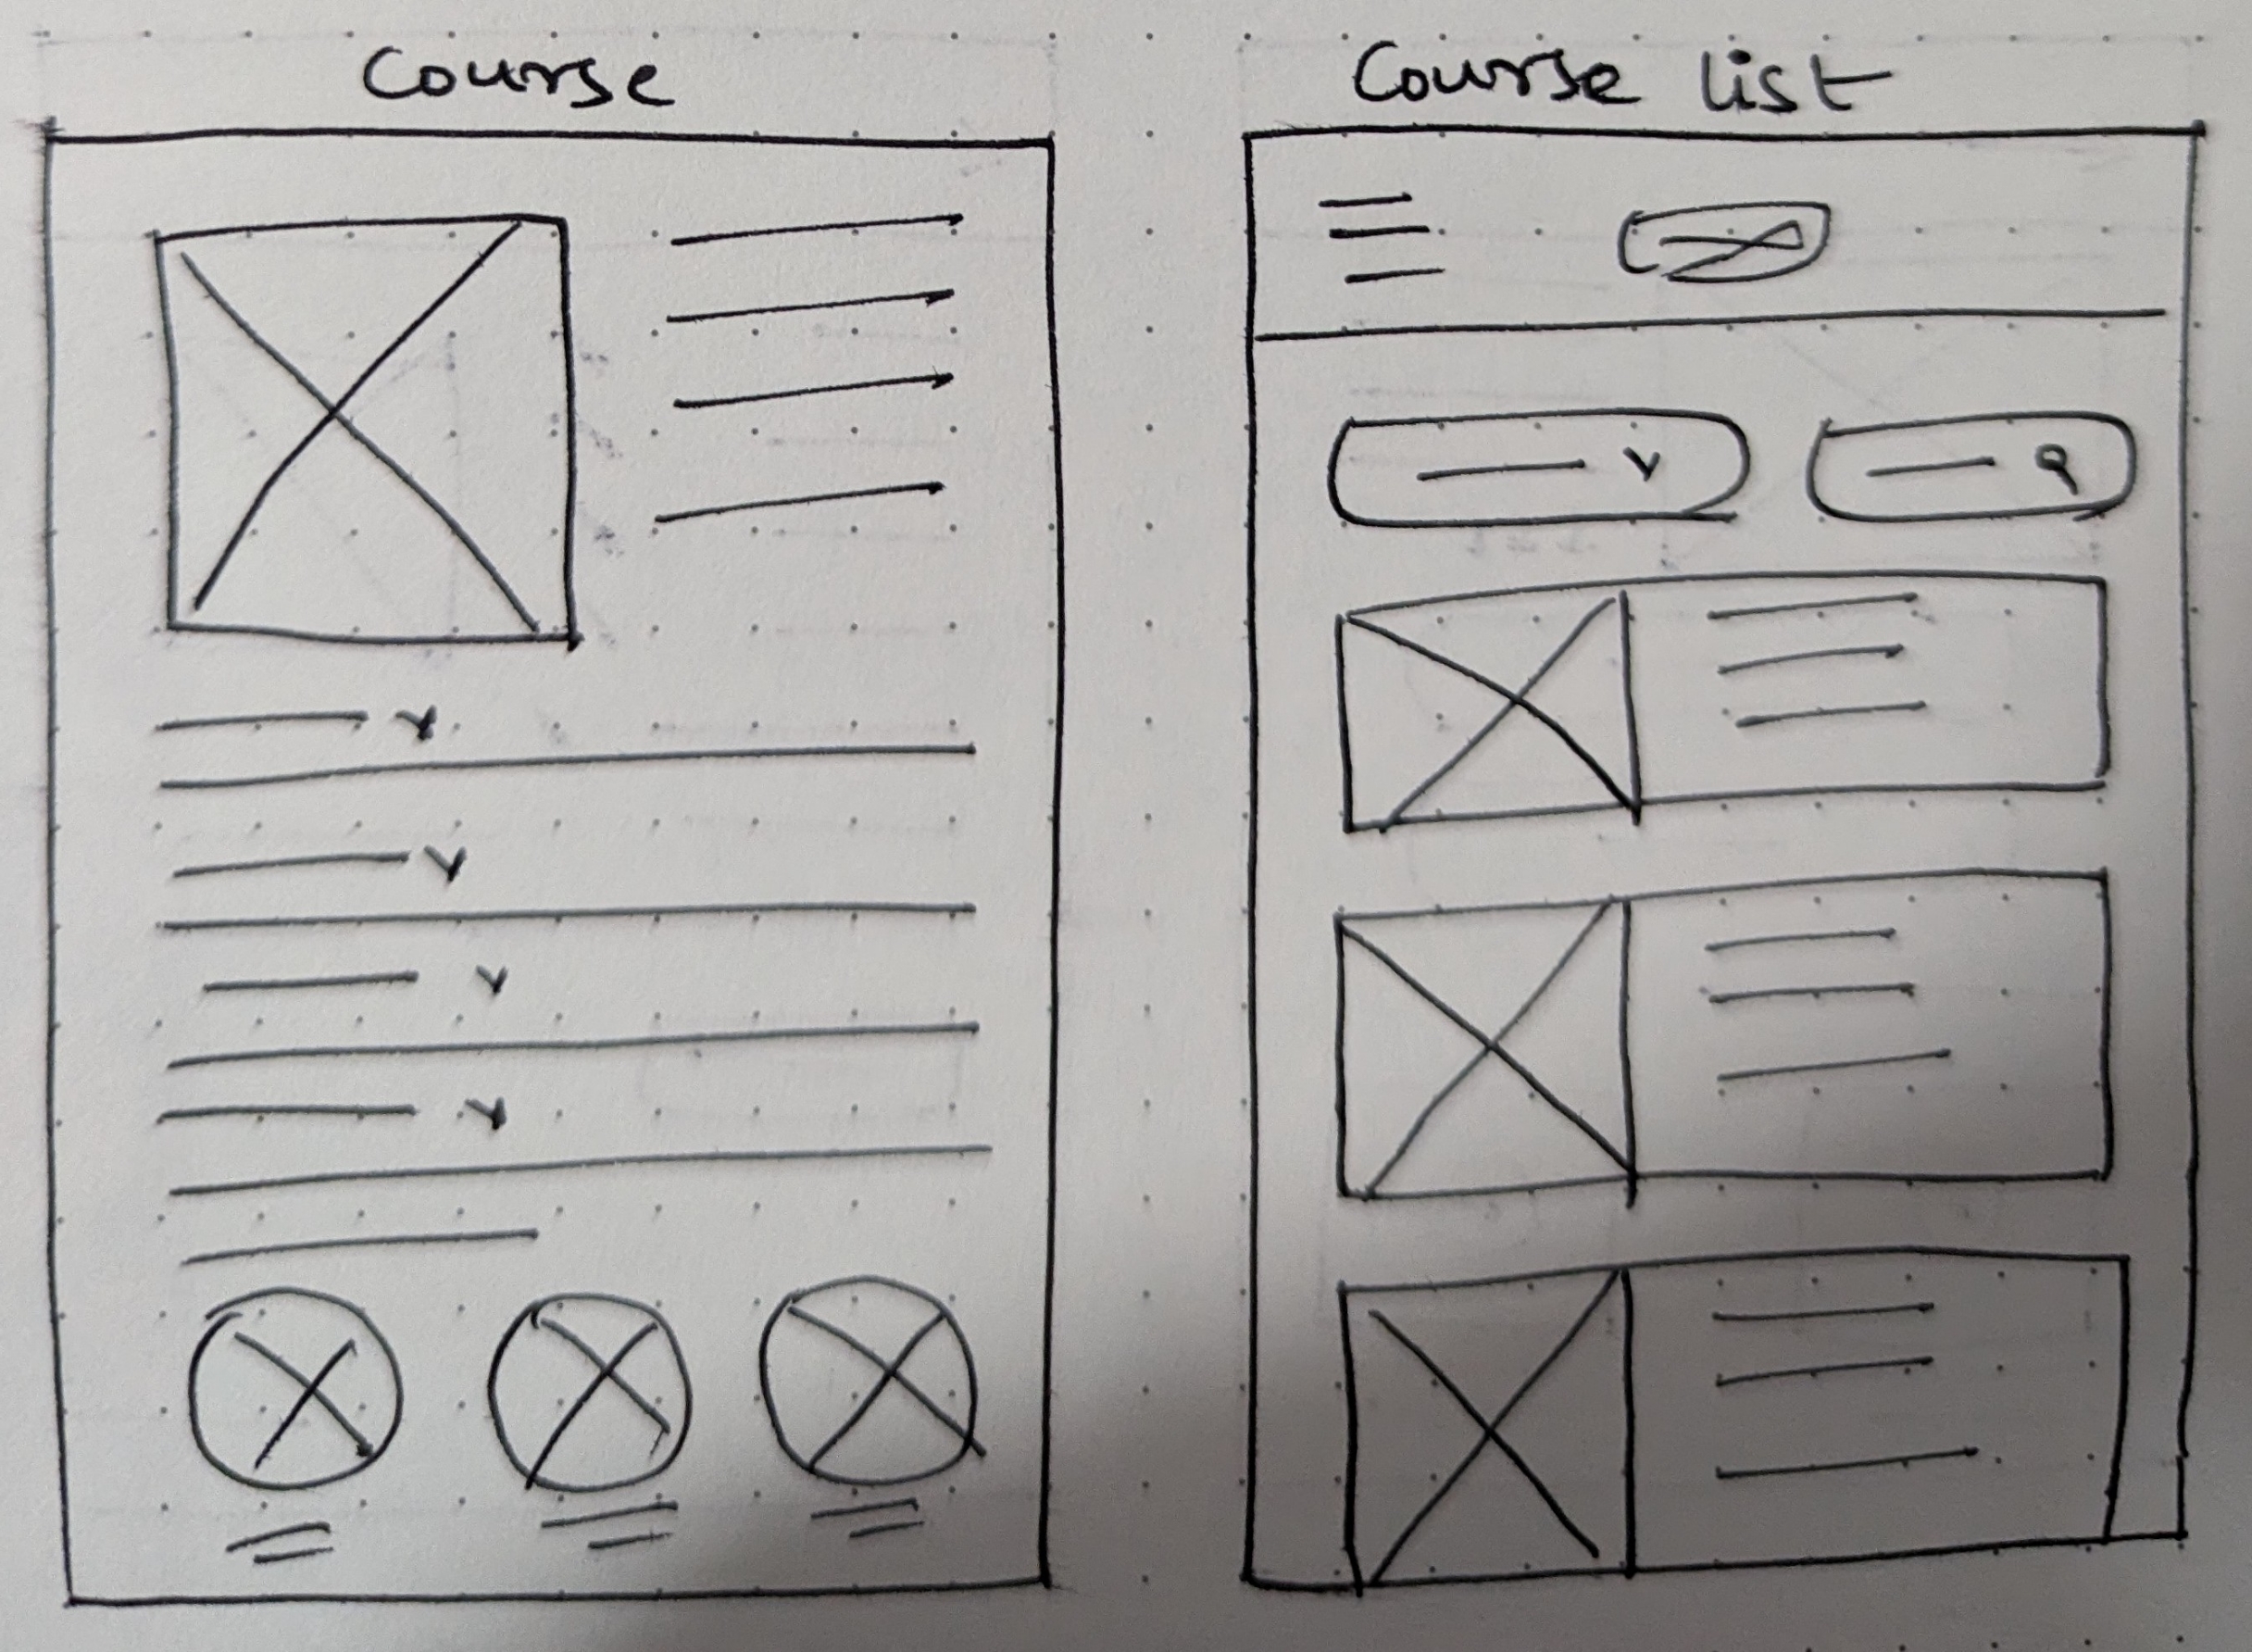 Course
Course list